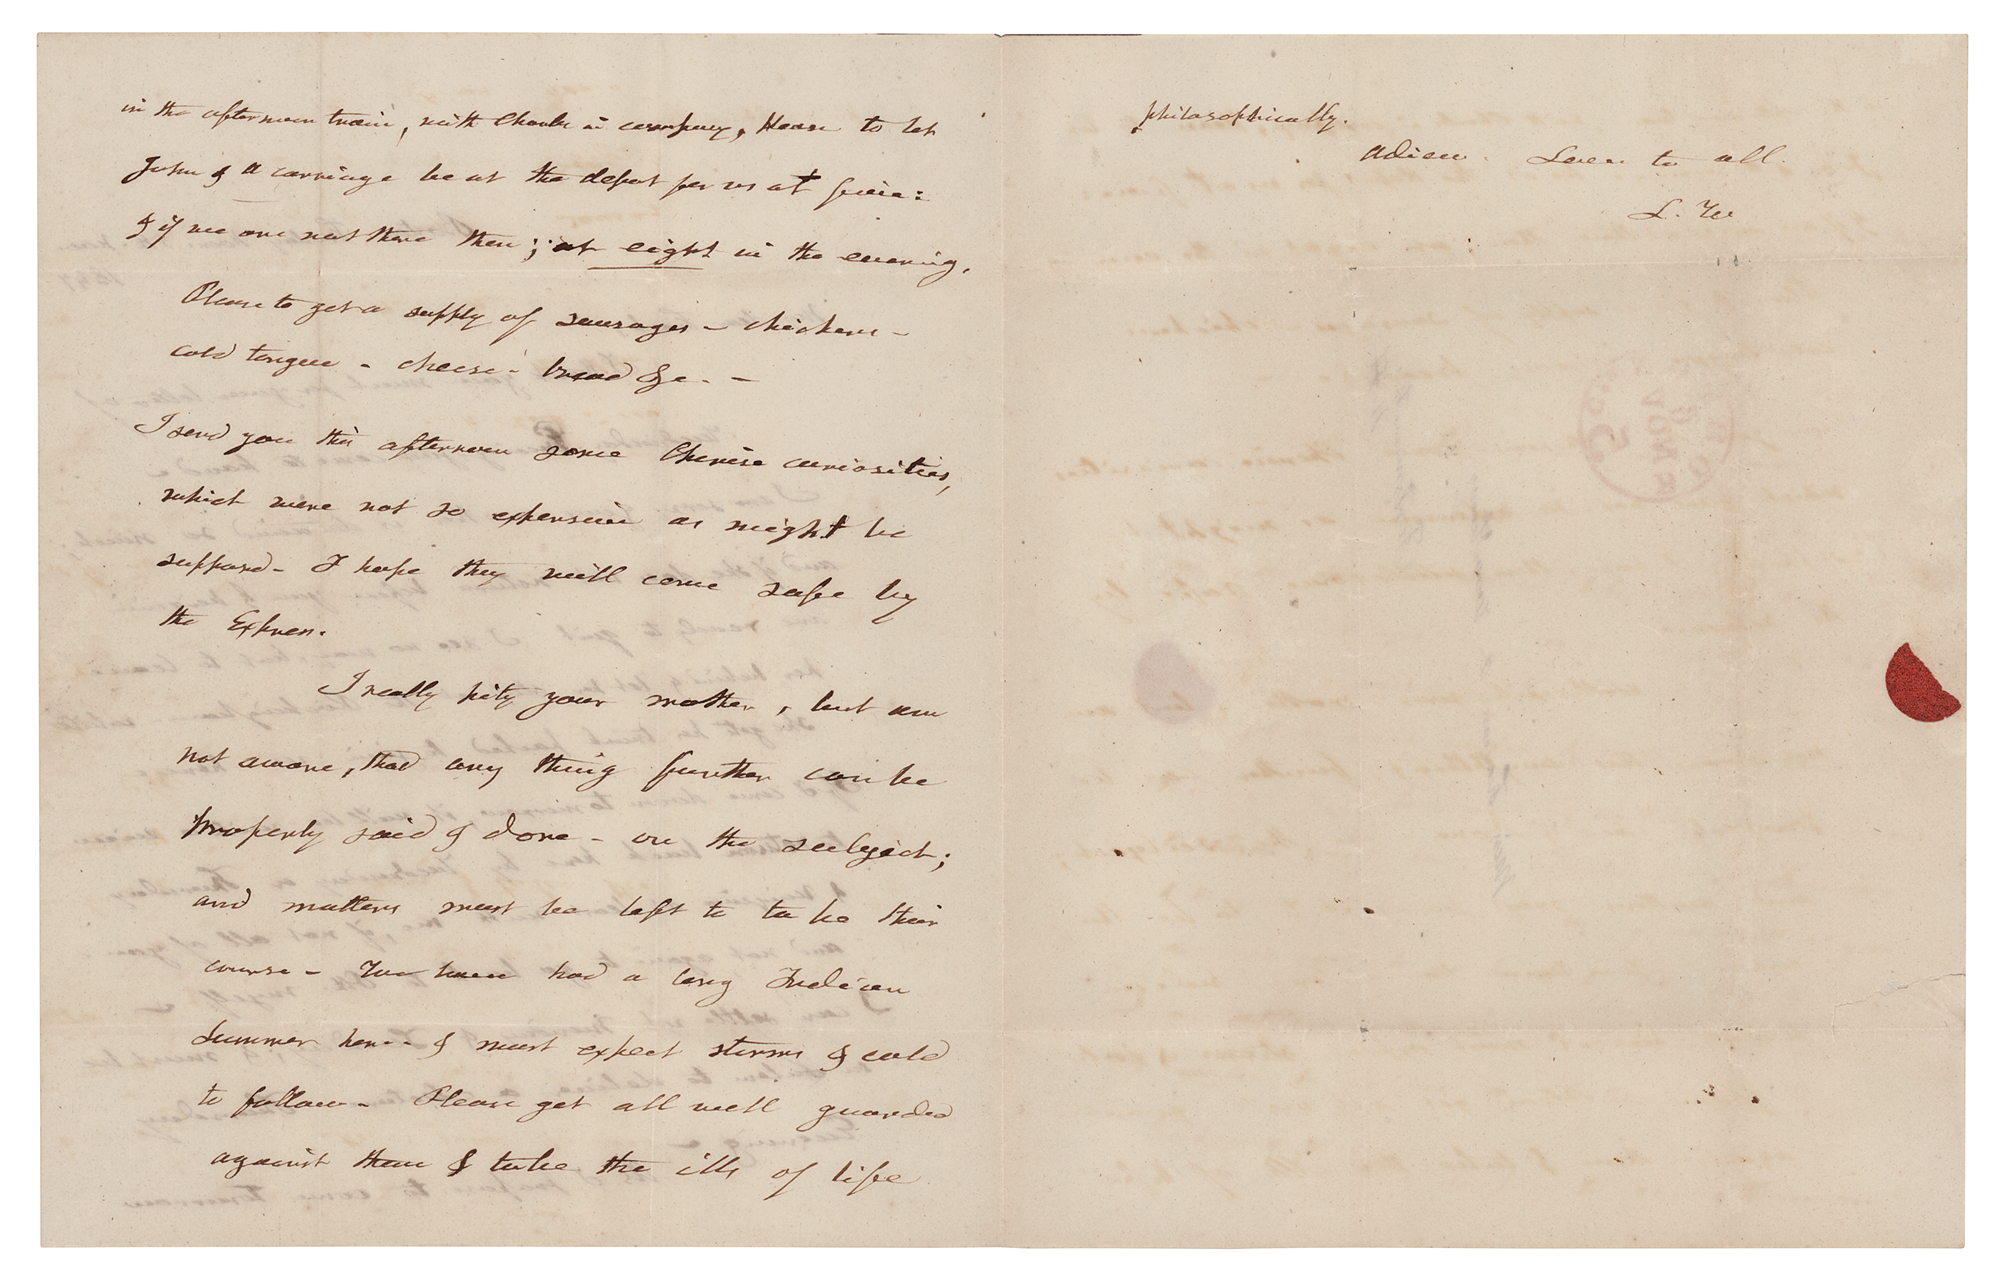 in the afternoon train, with Charles in company, Please to let
John & a carriage be at the depot for us at five:
& if we are not there then; at eight in the evening.
Please to get a supply of sausages - chickens -
cold tongue - cheese - bread &c. -
I send you this afternoon some Chinese curiosities,
which were not so expensive as might be
supposed - I hope they will come safe by
the Express.
I really pity your mother, but am
not aware, that any thing further can be
properly said & done - on the subject;
and matters must be left to take their
course - We have had a long Indian
Summer here - & must expect storms & cold
to follow - Please get all well guarded
against them & take the ills of life
philosophically.
adieu. Love to all.
L. W